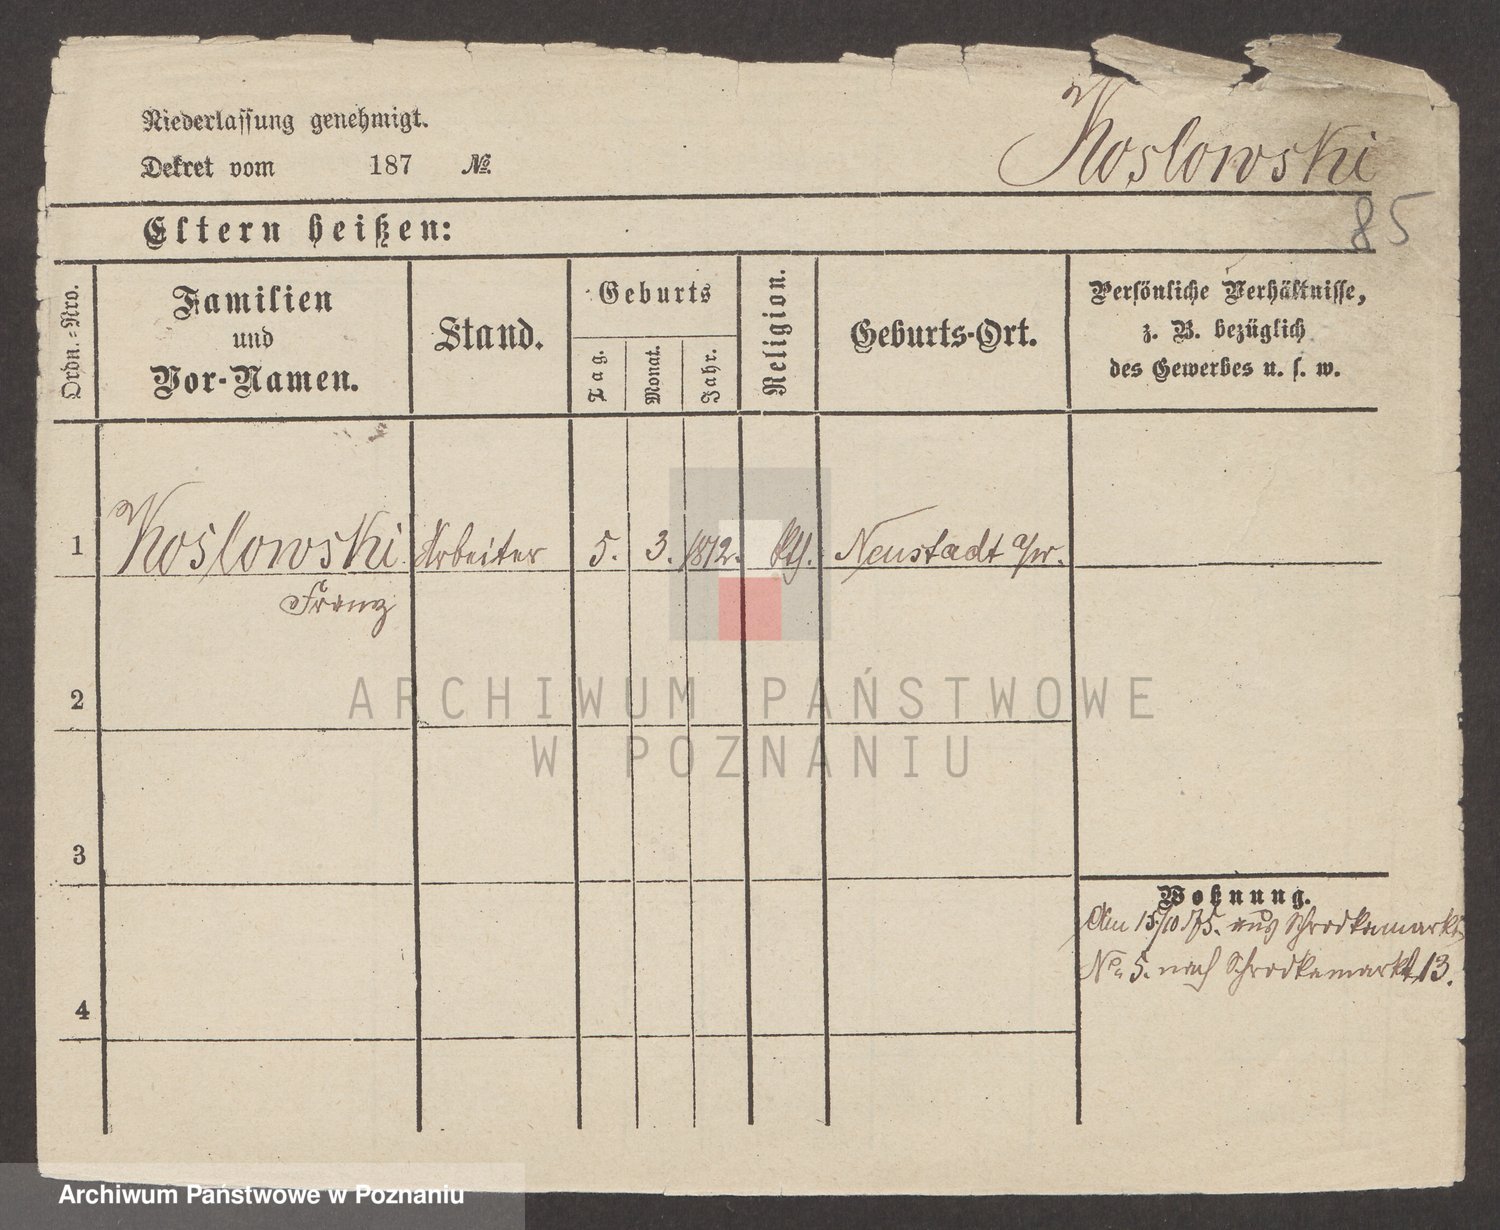 Niederlassung genehmigt.
Dekret vom 187 №
Koslowski
85
Eltern heißen:
Ordn.-Nro.
Familien
und
Vor-Namen.
Stand.
Geburts
Tag.
Monat.
Jahr.
Religion.
Geburts-Ort.
Persönliche Verhältnisse,
z. B. bezüglich
des Gewerbes u. s. w.
1 Koslowski Arbeiter 5. 3. 1812. Kth. Neustadt a/w.
Franz
2
3
4
Wohnung.
Am 15/10 75. aus Schrodkamarkt
No 5. nach Schrodkamarkt 13.
ARCHIWUM PAŃSTWOWE
W POZNANIU
Archiwum Państwowe w Poznaniu